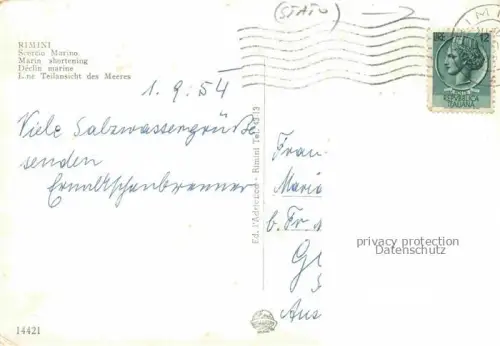 (STATO)
RIMINI
Scorcio Marino
Marin shortening
Déclin marine
Eine Teilansicht des Meeres
1.9.54
Viele Salzwassergrüße
senden
Ed. l'Adriaeco - Rimini Tel.
Frau
Maria
b. Fr
G
Aus
LIRE 12
REPUBBLICA
ITALIANA
privacy protection
Datenschutz
14421